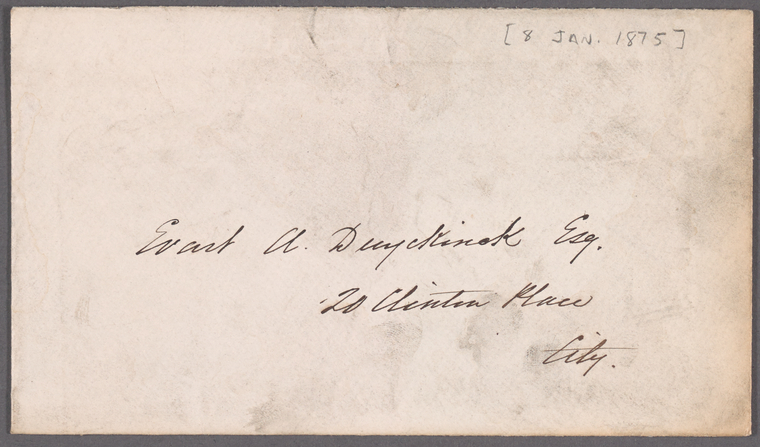 [8 JAN. 1875]
Evart A. Duyckinck Esq.
20 Clinton Place
City.